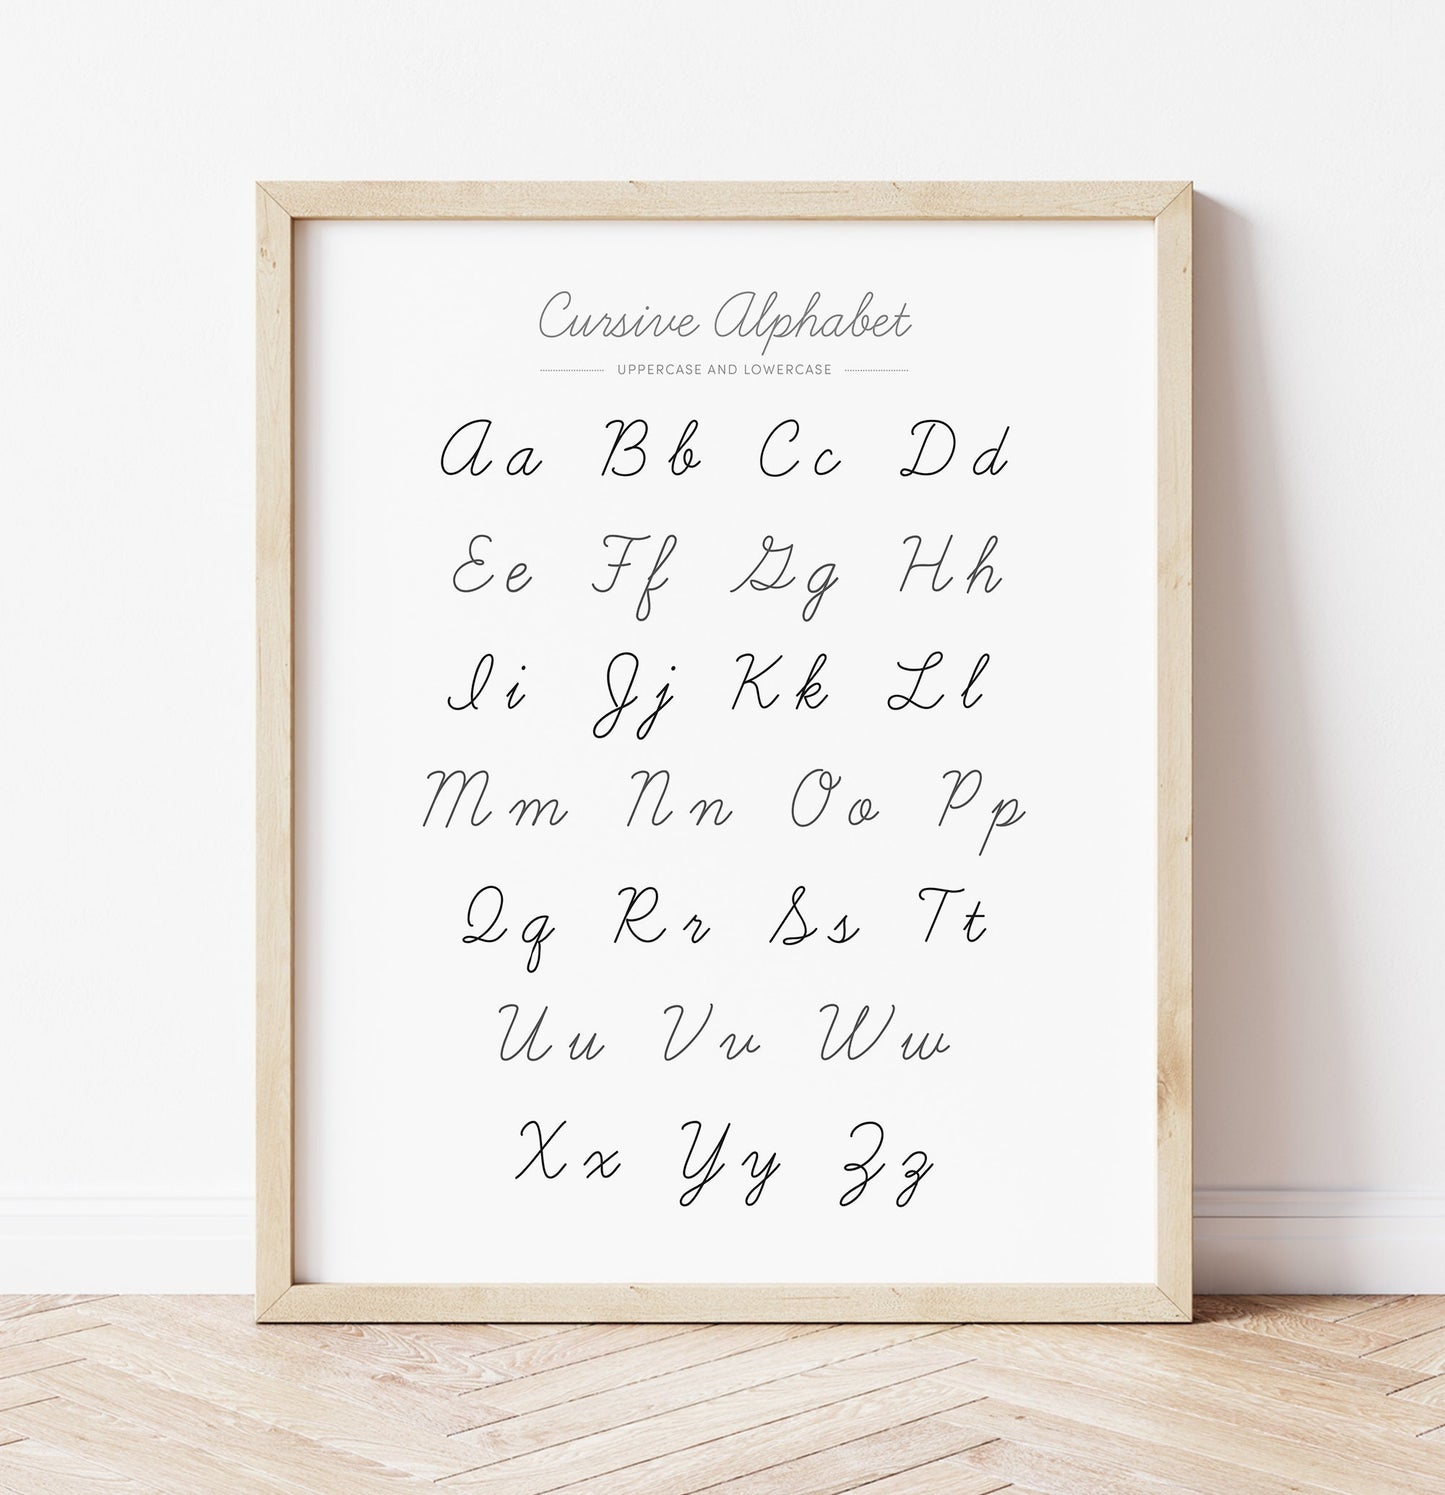 Cursive Alphabet
UPPERCASE AND LOWERCASE
Aa Bb Cc Dd
Ee Ff Gg Hh
Ii Jj Kk Ll
Mm Nn Oo Pp
Qq Rr Ss Tt
Uu Vv Ww
Xx Yy Zz